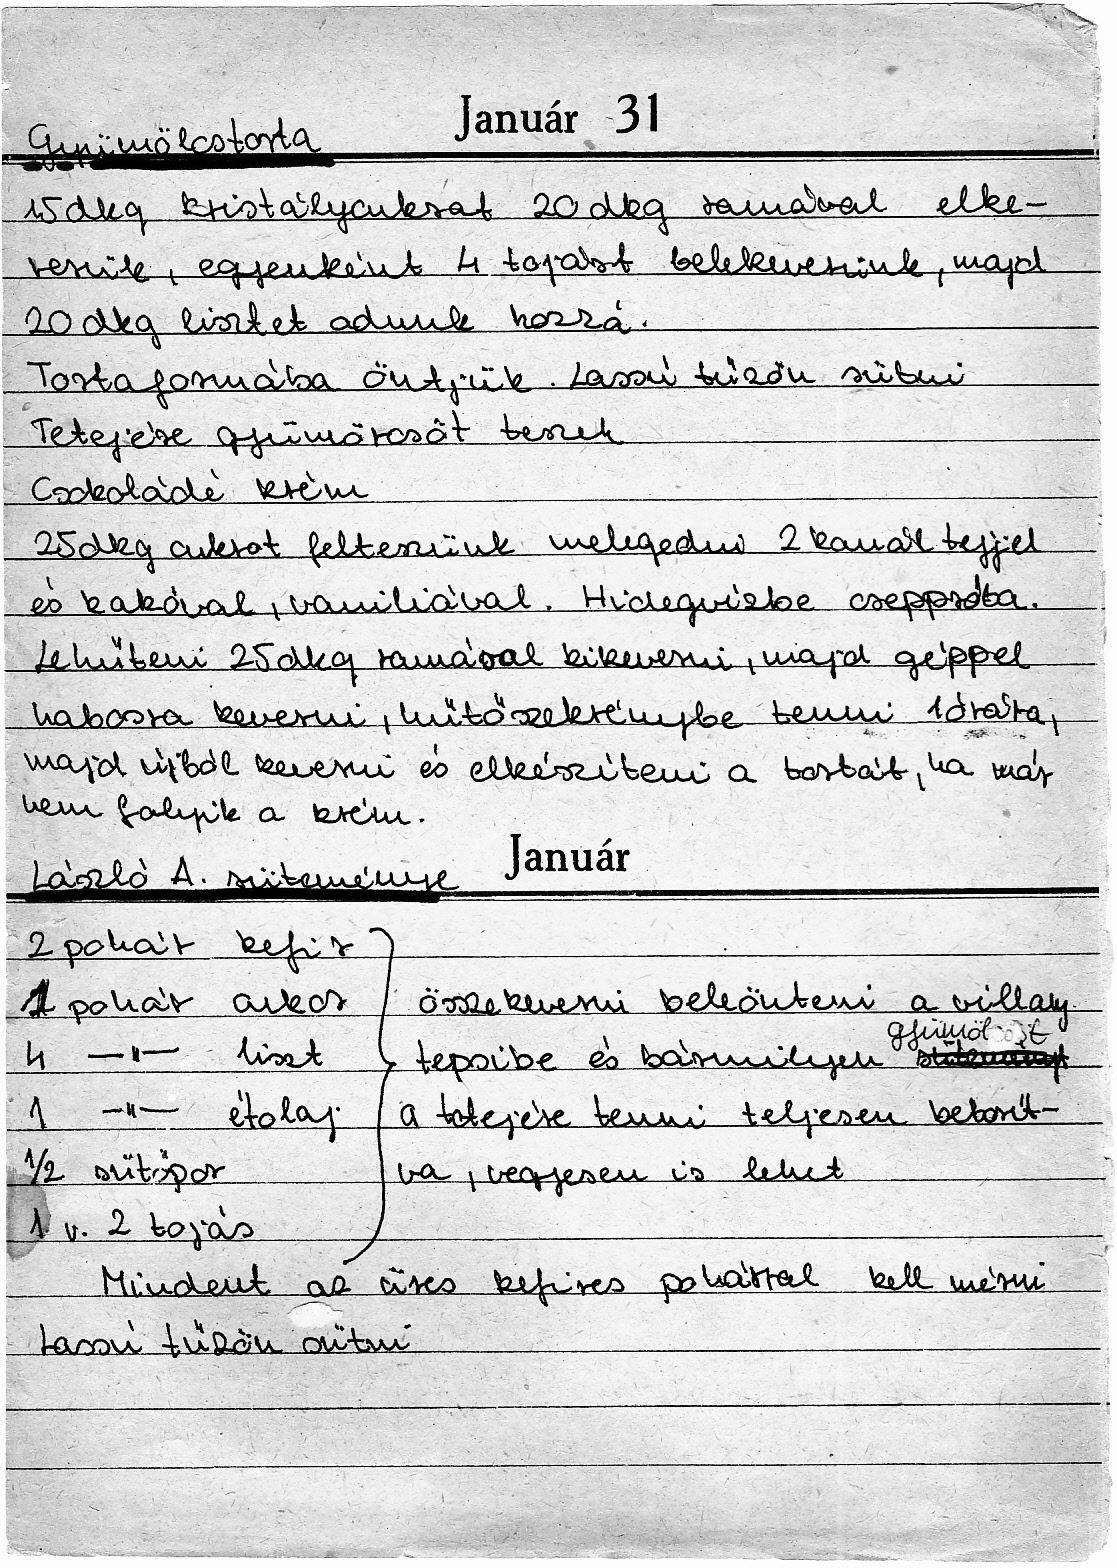 Január 31
Gyümölcstorta
15 dkg kristálycukrot 20 dkg ramával elke-
verünk, egyenként 4 tojást belekeverünk, majd
20 dkg lisztet adunk hozzá.
Tortaformába öntjük. Lassú tűzön sütni
Tetejére gyümörcsöt teszek
Csokoládé krém
25 dkg cukrot felteszünk melegedni 2 kanál tejjel
és kakóval, vaniliával. Hidegvízbe cseppróba.
Lehűteni 25 dkg ramával kikeverni, majd géppel
habosra keverni, hűtőszekrénybe tenni 1 órára,
majd újból keverni és elkészíteni a tortát, ha már
nem folyik a krém.
Január
László A. süteménye
2 pohár kefir
1 pohár cukor összekeverni beleönteni a villany
gyümölcsöt
4 —"— liszt tepsibe és bármilyen
1 —"— étolaj a tetejére tenni teljesen beborít-
1/2 sütőpor va, vegyesen is lehet
1 v. 2 tojás
Mindent az üres kefires pohárral kell mérni
Lassú tűzön sütni